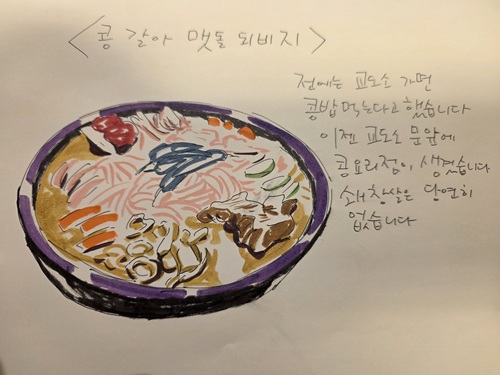 <콩 갈아 맷돌 되비지>
전에는 교도소 가면
콩밥 먹는다고 했습니다
이젠 교도소 문앞에
콩요리점이 생겼습니다
쇠창살은 당연히
없습니다